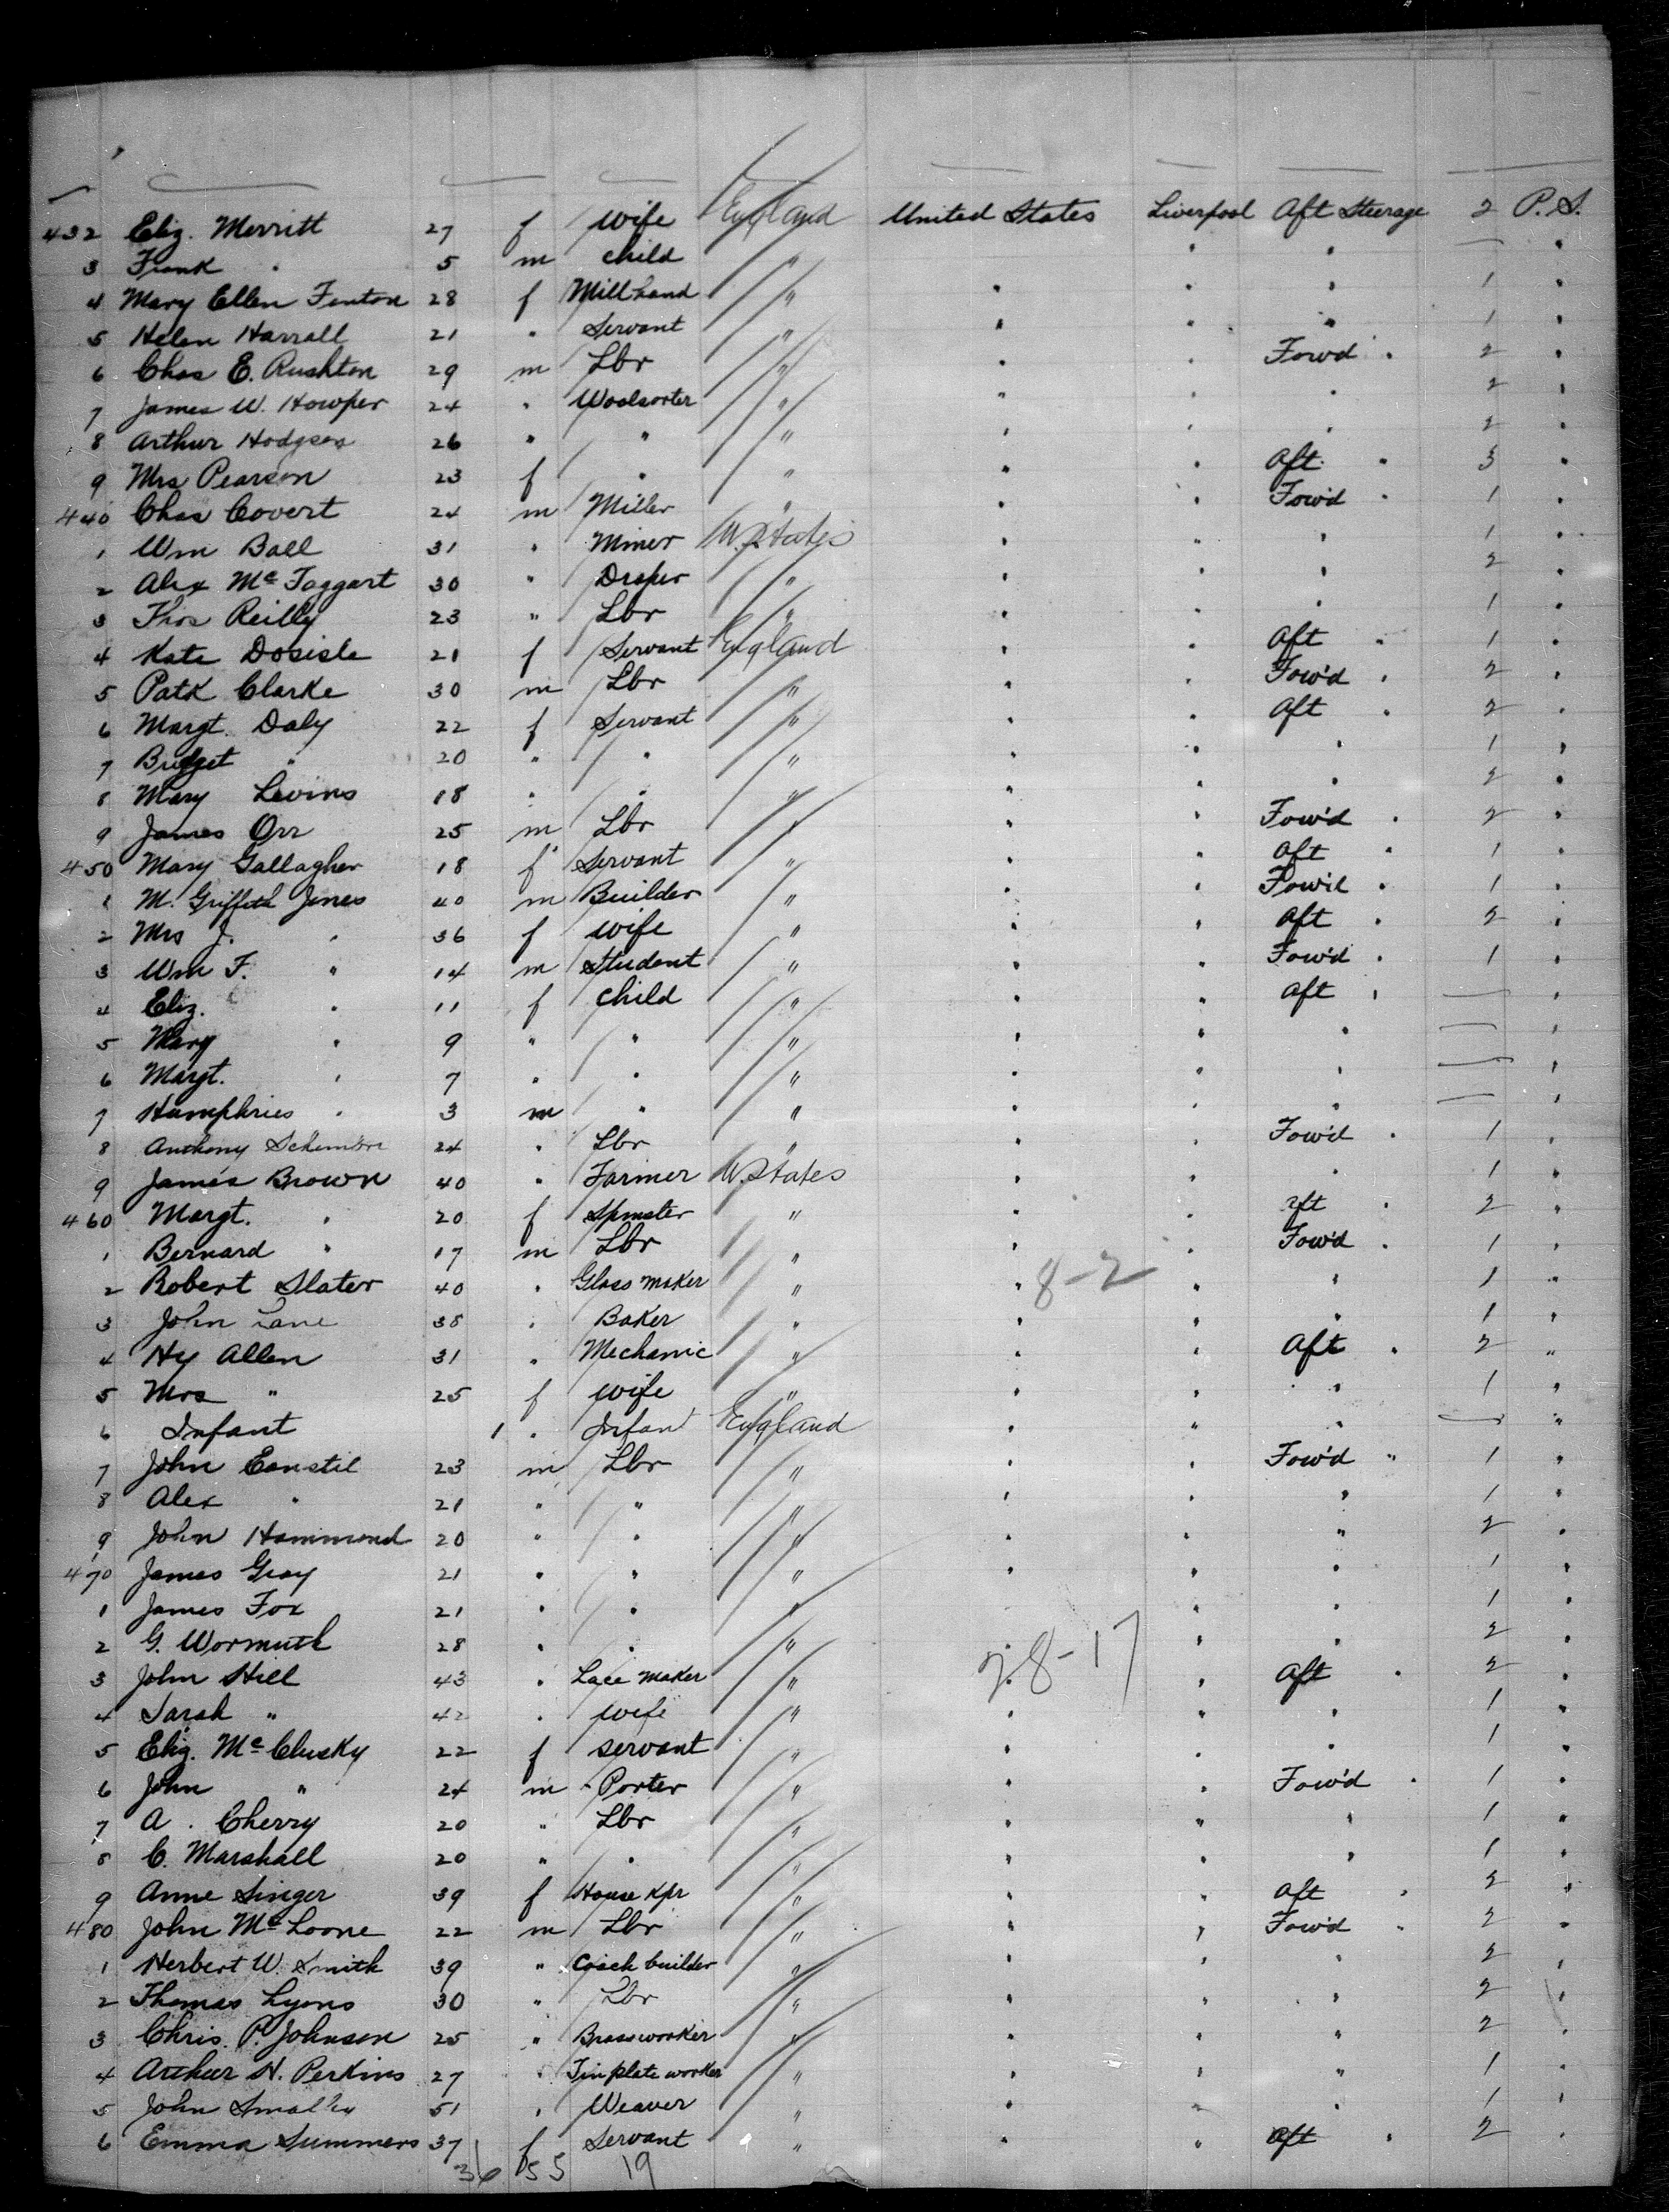 432 Eliz. Merritt 27 f wife England United States Liverpool Aft Steerage 2 P.S.
3 Frank " 5 m child " " " — "
4 Mary Ellen Fenton 28 f Mill hand " " " " 1 "
5 Helen Harrall 21 " Servant " " " " 1 "
6 Chas E. Rushton 29 m Lbr " " " Fow'd " 2 "
7 James W. Howper 24 " Woolsorter " " " " 2 "
8 Arthur Hodgson 26 " " " " " " 2 "
9 Mrs Pearson 23 f " " " " Aft " 3 "
440 Chas Covert 24 m Miller " " " Fow'd " 1 "
1 Wm Ball 31 " Miner U. States " " " 1 "
2 Alex McTaggart 30 " Draper " " " " 2 "
3 Thos Reilly 23 " Lbr " " " " 1 "
4 Kate Dosisle 21 f Servant England " " Aft " 1 "
5 Patk Clarke 30 m Lbr " " " Fow'd " 2 "
6 Margt. Daly 22 f Servant " " " Aft " 2 "
7 Bridget " 20 " " " " " " 1 "
8 Mary Levins 18 " " " " " " 2 "
9 James Orr 25 m Lbr " " " Fow'd " 2 "
450 Mary Gallagher 18 f Servant " " " Aft " 1 "
1 M. Griffith Jones 40 m Builder " " " Fow'd " 1 "
2 Mrs J. " 36 f wife " " " Aft " 2 "
3 Wm F. " 14 m Student " " " Fow'd " 1 "
4 Eliz. " 11 f child " " " Aft " — "
5 Mary " 9 " " " " " " — "
6 Margt. " 7 " " " " " " — "
7 Humphries " 3 m " " " " " — "
8 Anthony 24 " Lbr " " " Fow'd " 1 "
9 James Brown 40 " Farmer U. States " " " 1 "
460 Margt. " 20 f Spinster " " " Aft " 2 "
1 Bernard " 17 m Lbr " " " Fow'd " 1 "
2 Robert Slater 40 " Glass maker " " 8-2 " " 1 "
3 John Lane 38 " Baker " " " " 1 "
4 Hy Allen 31 " Mechanic " " " Aft " 2 "
5 Mrs " 25 f wife " " " " 1 "
6 Infant 1 " Infant England " " " — "
7 John Canstil 23 m Lbr " " " Fow'd " 1 "
8 Alex " 21 " " " " " " 1 "
9 John Hammond 20 " " " " " " 2 "
470 James Gray 21 " " " " " " 1 "
1 James Fox 21 " " " " " " 1 "
2 G. Wormuth 28 " " " " " " 2 "
3 John Hill 43 " Lace maker " " 28-17 " Aft " 2 "
4 Sarah " 42 " wife " " " " 1 "
5 Eliz. McClusky 22 f servant " " " " 1 "
6 John " 24 m Porter " " " Fow'd " 1 "
7 A. Cherry 20 " Lbr " " " " 1 "
8 C. Marshall 20 " " " " " " 1 "
9 Anne Singer 39 f House kpr " " " Aft " 2 "
480 John McLoone 22 m Lbr " " " Fow'd " 2 "
1 Herbert W. Smith 39 " Coach builder " " " " 2 "
2 Thomas Lyons 30 " Lbr " " " " 2 "
3 Chris. P. Johnson 25 " Brassworker " " " " 2 "
4 Arthur H. Perkins 27 " Tin plate worker " " " " 1 "
5 John Smalley 51 " Weaver " " " " 1 "
6 Emma Summers 37 f Servant " " " Aft " 2 "
36 55 19